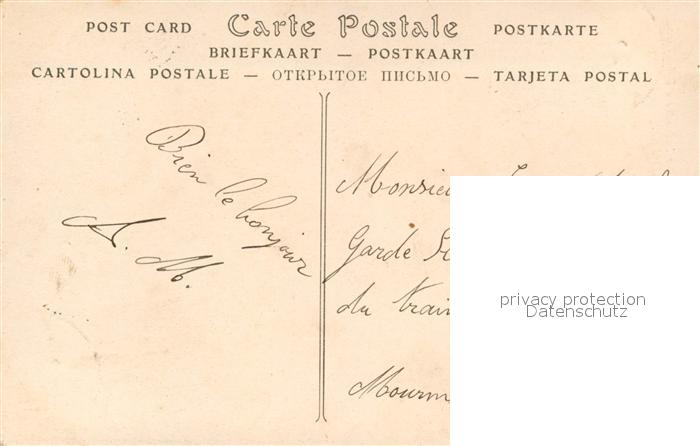 POST CARD Carte Postale POSTKARTE
BRIEFKAART — POSTKAART
CARTOLINA POSTALE — ОТКРЫТОЕ ПИСЬМО — TARJETA POSTAL
Bien le bonjour
A. M.
Garde
du train
privacy protection
Datenschutz